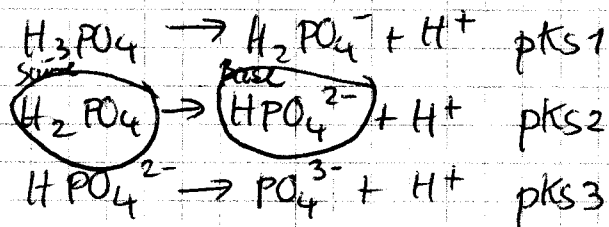 H₃PO₄ → H₂PO₄⁻ + H⁺ pKs1
Säure Base
H₂PO₄ → HPO₄²⁻ + H⁺ pKs2
HPO₄²⁻ → PO₄³⁻ + H⁺ pKs3